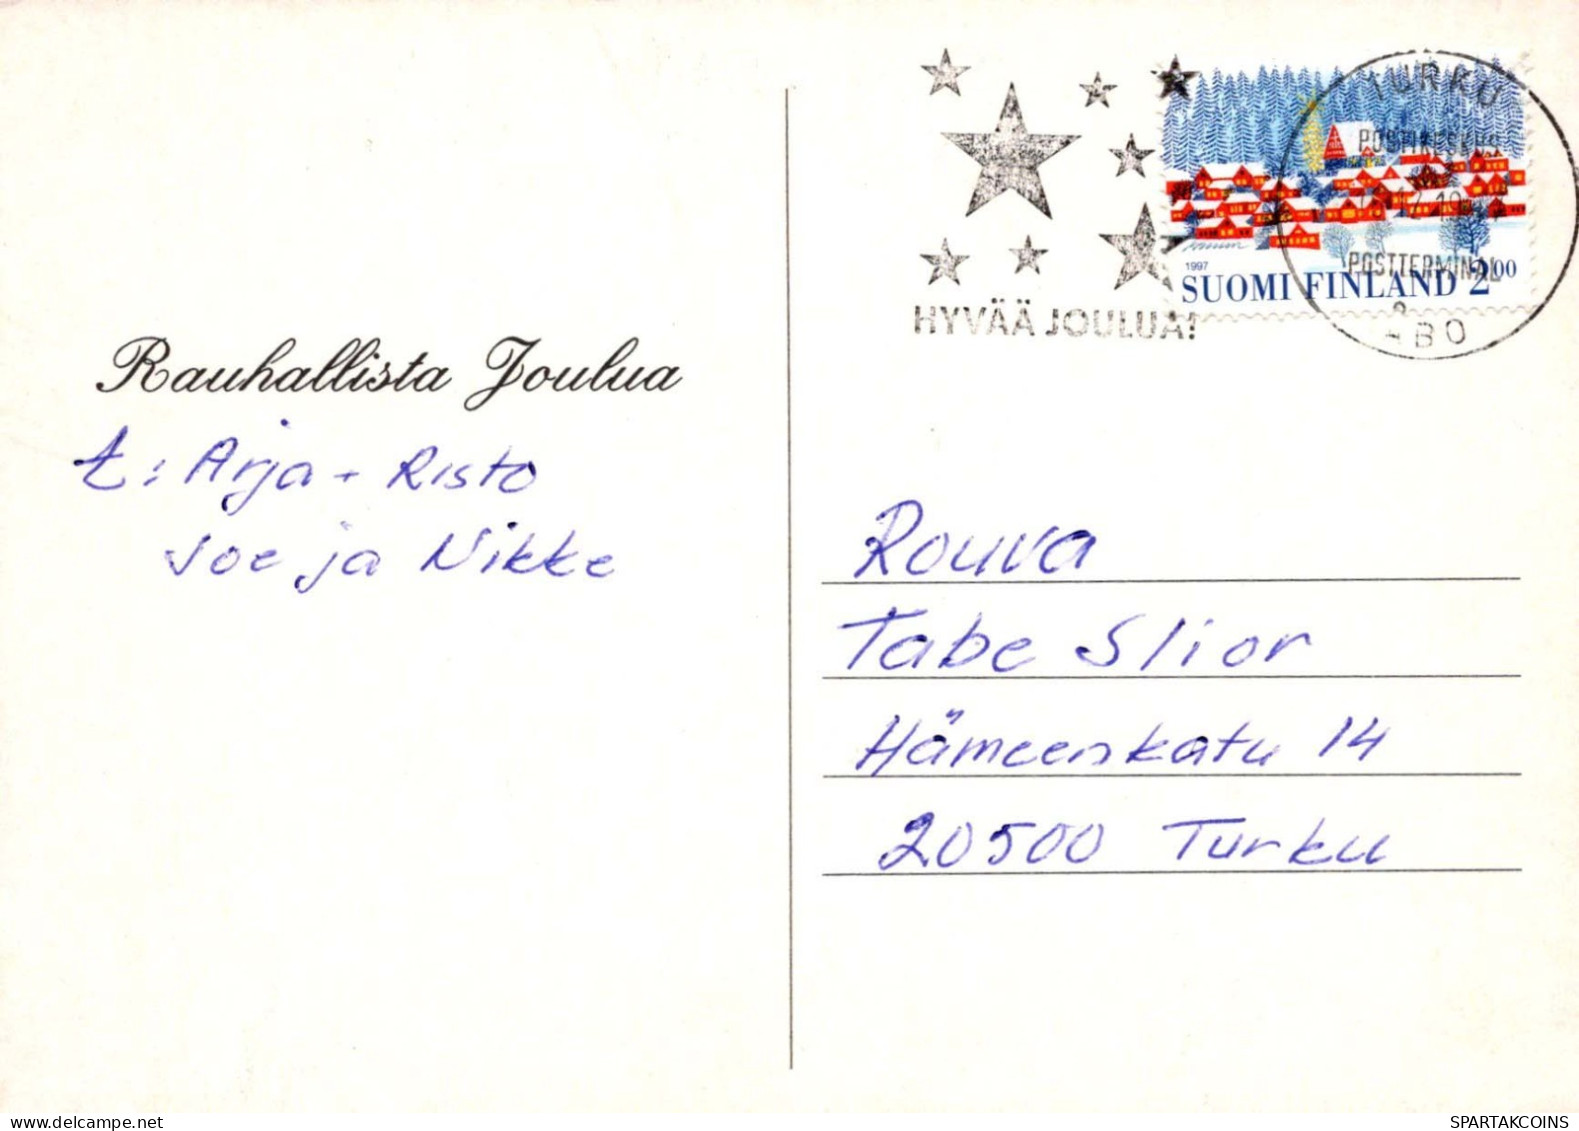 Rauhallista Joulua
t: Arja + Risto
Joe ja Nikke
HYVÄÄ JOULUA!
1997
SUOMI FINLAND 2.00
TURKU
POSTIKESKUS
POSTTERMINAL
ÅBO
Rouva
Tabe Slior
Hämeenkatu 14
20500 Turku
www.delcampe.net
SPARTAKCOINS